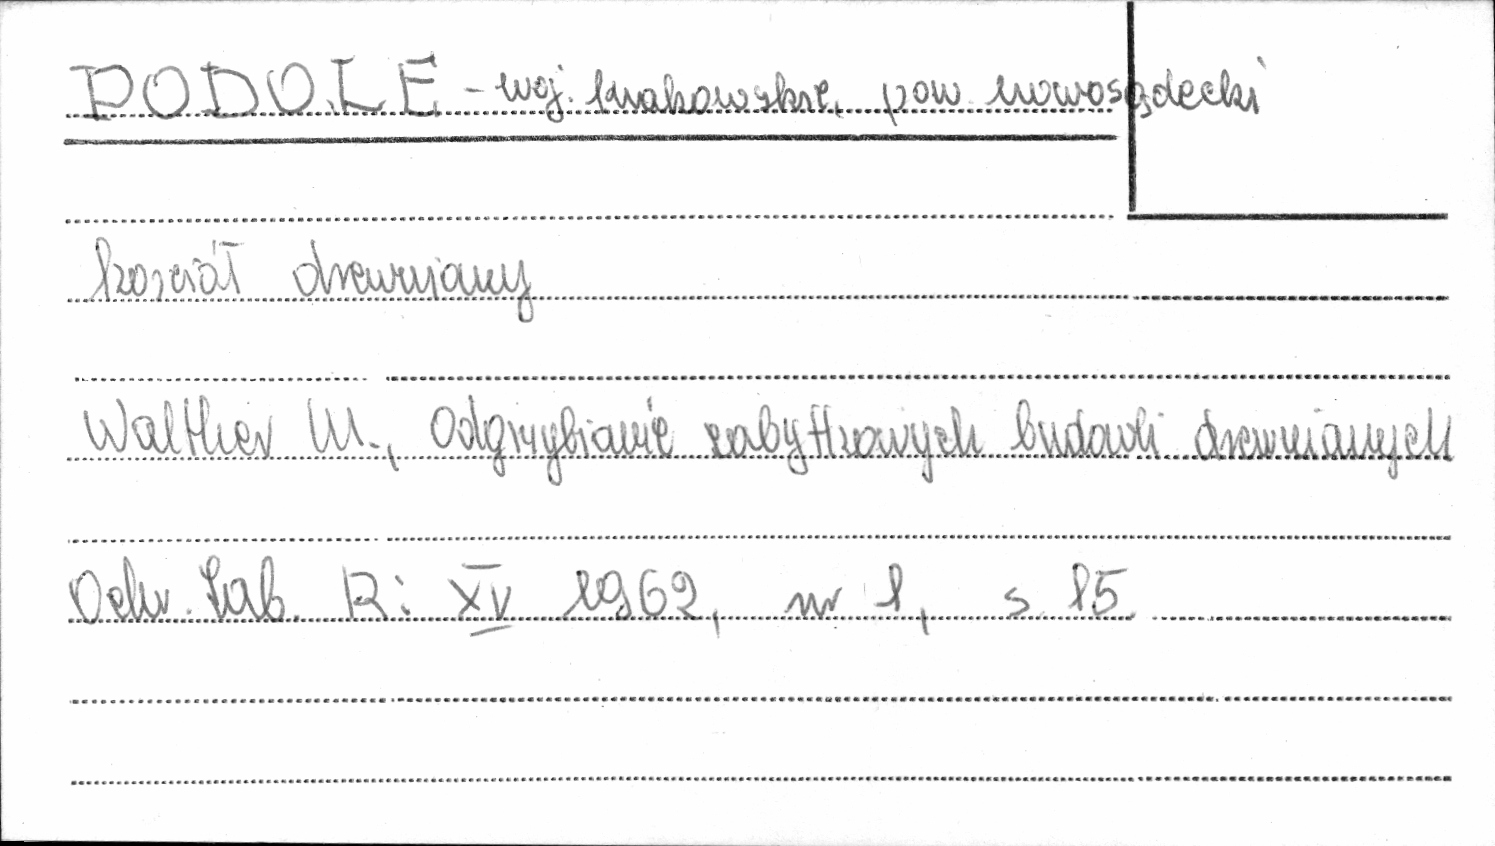 PODOLE - woj. krakowskie, pow. nowosądecki
kościół drewniany
Walther M., Odgrzybianie zabytkowych budowli drewnianych
Ochr. Zab. R: XV 1962, nr 1, s. 15.